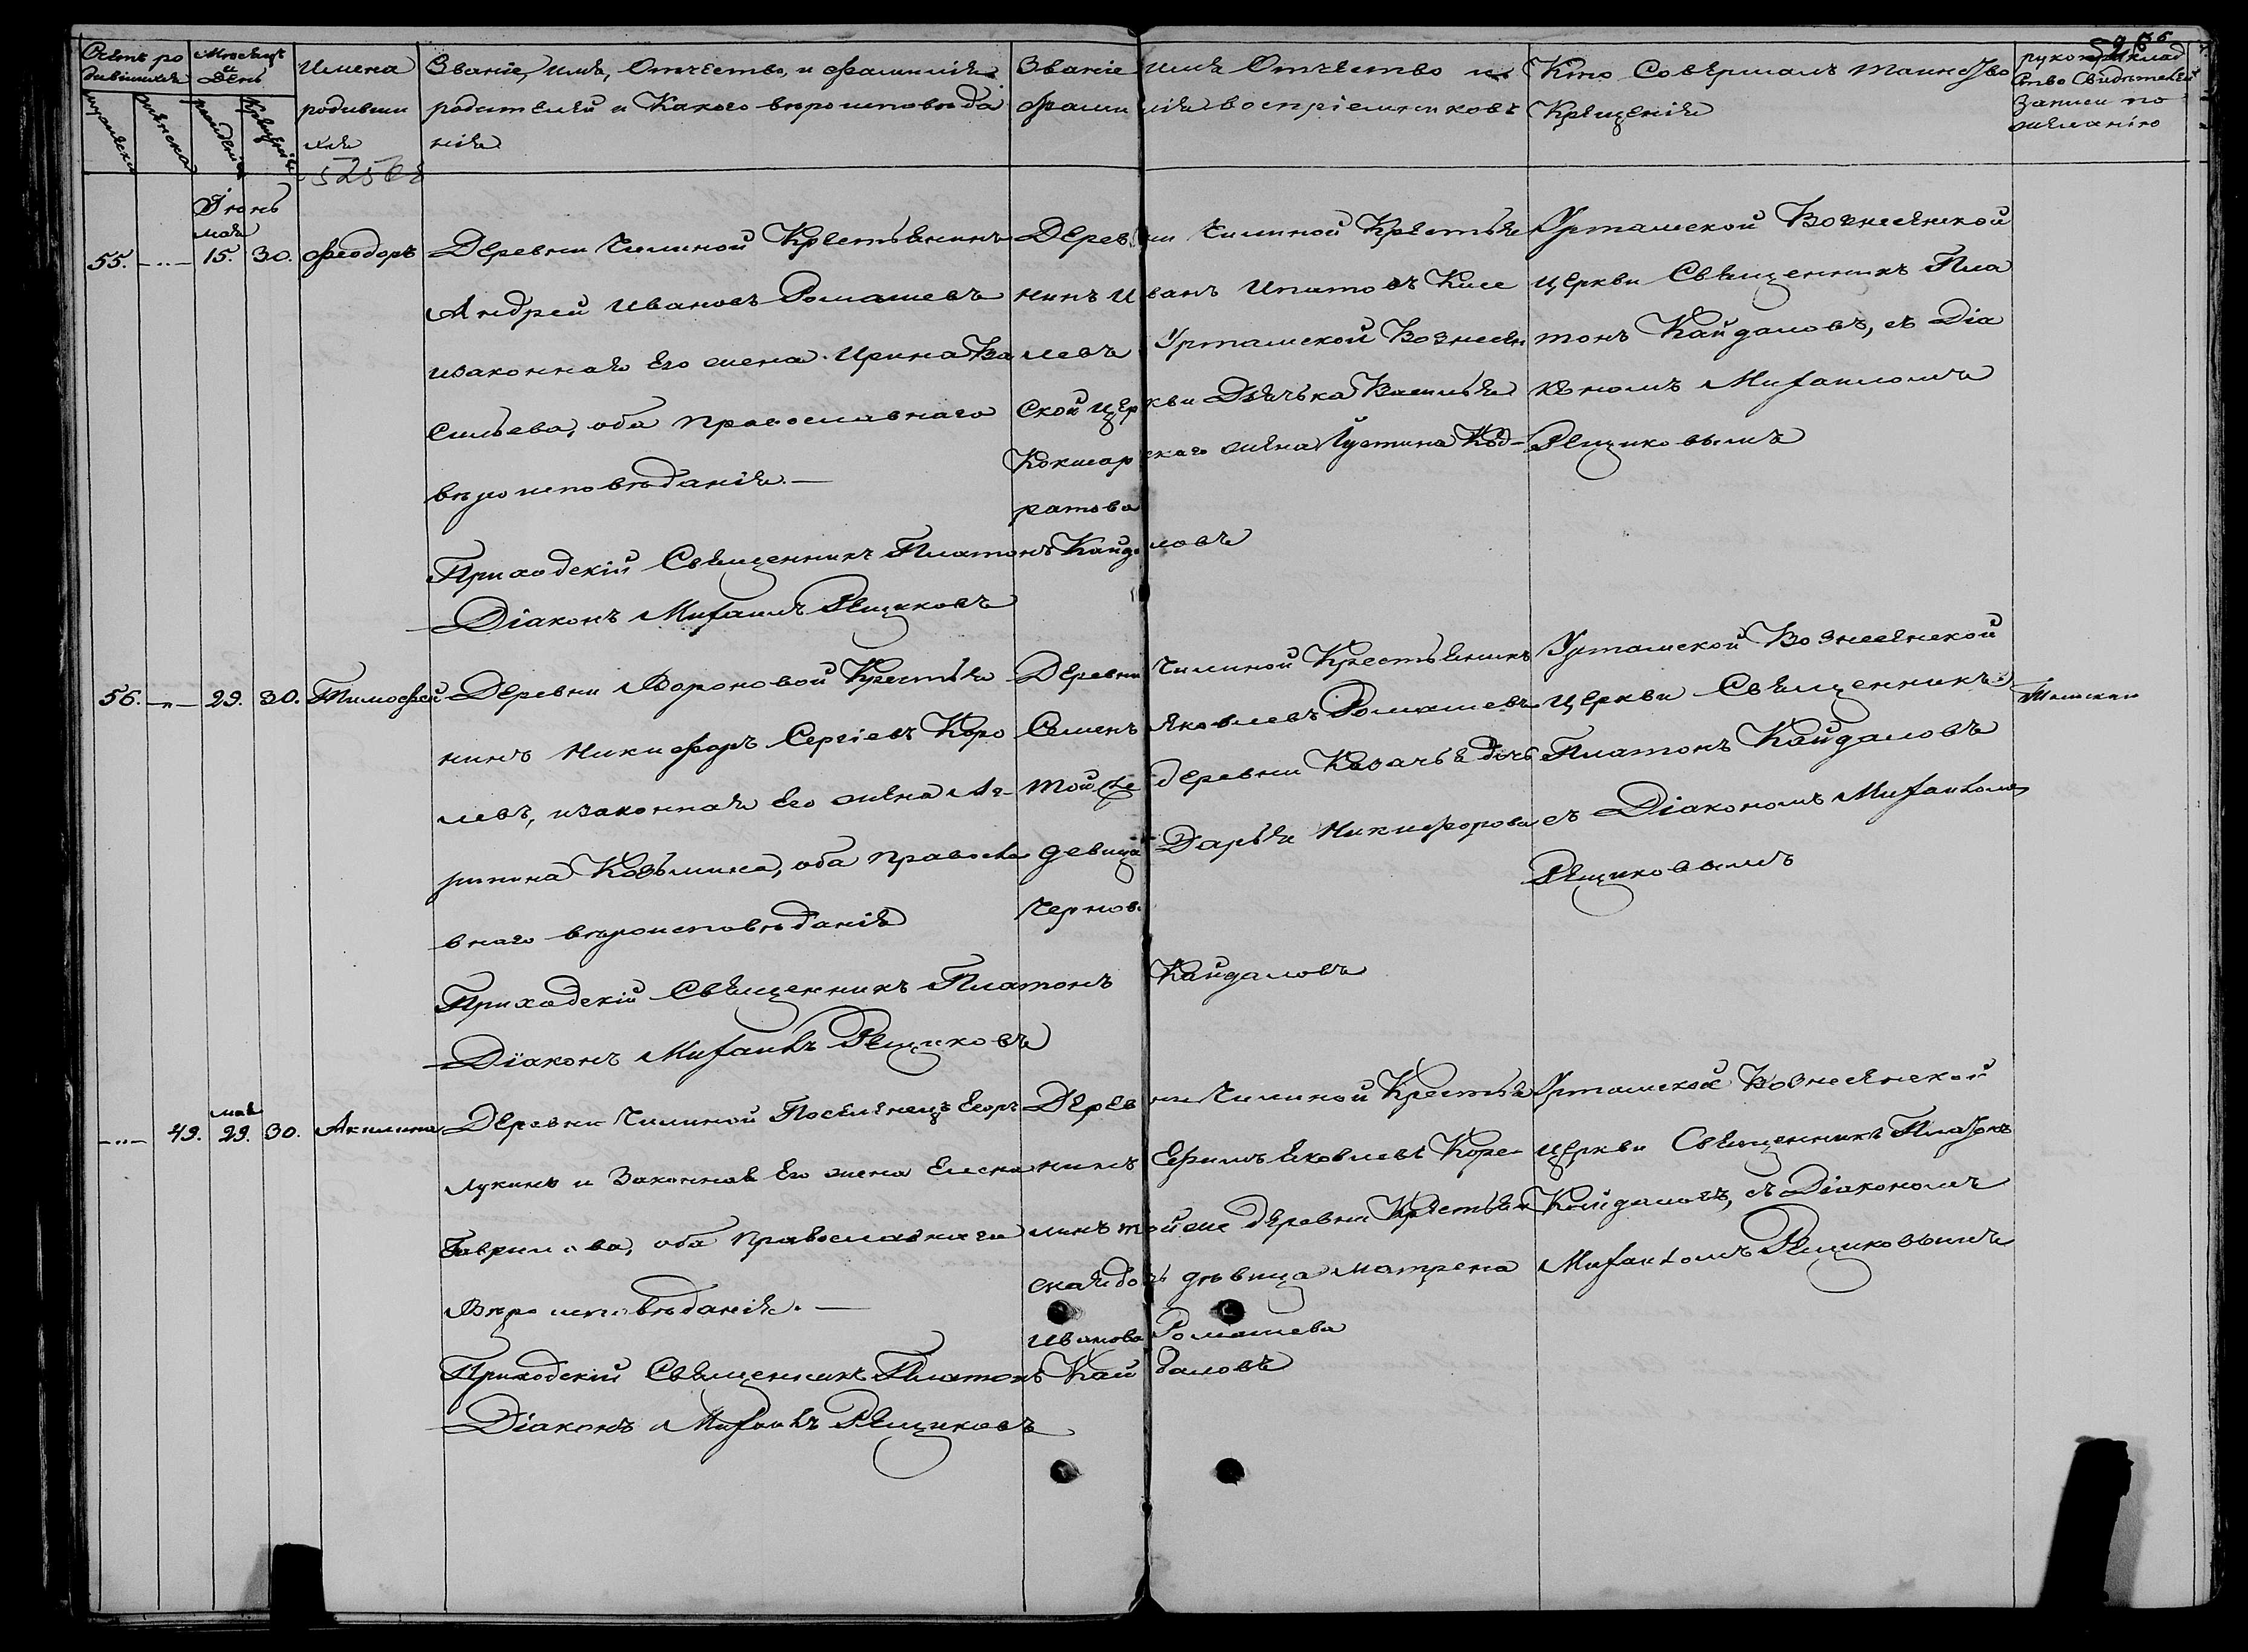 Счетъ ро
дившихся
мужеска
женска
Мѣсяцъ
и
День
рожденія
крещенія
Имена
родивши
хся
Званіе, имя, Отчество, и фамилія
родителей и Какого вѣроисповѣда
нія
Званіе имя Отчество и
фамилія воспріемниковъ
Кто Совершалъ таинство
Крещенія
рукоприклад
ство Свидѣтелей
Записи по
желанію
Іюнь
мая
55. 15. 30. Феодоръ
Деревни Чилиной Крестьянинъ
Андрей Ивановъ Ромашевъ
изаконная Его жена Ирина Ва
сильева, оба Православнаго
вѣроисповѣданія.—
Деревни Чилиной Крестья
нинъ Иванъ Ипатовъ Кисе
левъ Уртамской Вознесен
ской Церкви Дьячька Василья
Кокшарскаго жена Іустина Код-
ратова
Уртамской Вознесенской
церкви Священникъ Пла
тонъ Кайдаловъ, съ Діа
кономъ Михаиломъ
Рещиковымъ
Приходскій Священникъ Платонъ Кайдаловъ
Діаконъ Михаилъ Рещиковъ
56. 29. 30. Тимофей
Деревни Вороновой Крестья
нинъ Никифоръ Сергіевъ Коро
левъ, изаконная Его жена Аг-
рипина Козьмина, оба Правосла
внаго вѣроисповѣданія
Деревни Чилиной Крестьянинъ
Семенъ Яковлевъ Ромашевъ
той же деревни Казачья дочь
девица Дарья Никифорова
Чернов
Уртамской Вознесенской
церкви Священникъ
Платонъ Кайдаловъ
съ Діакономъ Михаиломъ
Рещиковымъ
Приходскій Священникъ Платонъ Кайдаловъ
Діаконъ Михаилъ Рещиковъ
мая
49. 29. 30. Акилина
Деревни Чилиной Поселенецъ Егоръ
Лукинъ и Законная Его жена Елена
Гаврилова, оба Православнаго
Вѣроисповѣданія.—
Деревни Чилиной Крестья
нинъ Ефимъ Яковлевъ Коре
линъ тойже деревни Крестьян
ская дочь дѣвица Матрена
Иванова Ромашева
Уртамской Вознесенской
церкви Священникъ Платонъ
Кайдаловъ, съ Діакономъ
Михаиломъ Рещиковымъ
Приходскій Священникъ Платонъ Кайдаловъ
Діаконъ Михаилъ Рещиковъ